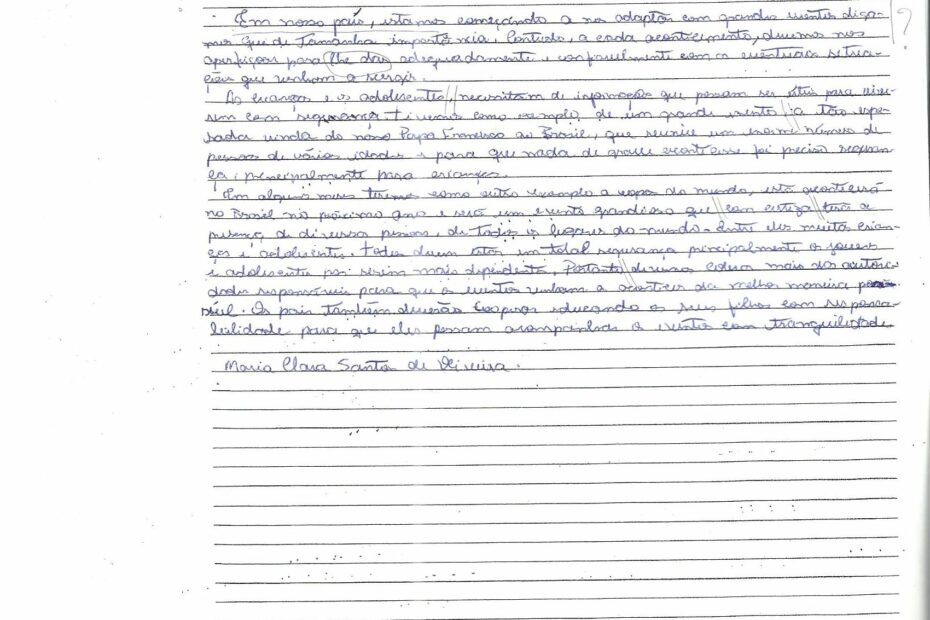 Em nosso país, estamos começando a nos adaptar com grandes eventos diga- ?
mos que de Tamanha importância. Contudo, a cada acontecimento, devemos nos
aperfeiçoar para lhe dar adequadamente e conparelmente com as eventuais situa-
ções que venham a surgir.
As crianças e os adolescentes, necessitam de informações que possam ser úteis para
com segurança. Tivemos como exemplo, de um grande evento a tão espe-
rada vinda do nosso Papa Francisco ao Brasil, que reuniu um enorme número de
pessoas de várias idades e para que nada de grave acontecesse foi preciso seguran-
ça, principalmente para crianças.
Em alguns meses teremos como outro exemplo a copa do mundo, está acontecerá
no Brasil no próximo ano e será um evento grandioso que com certeza terá a
presença de diversas pessoas, de todos os lugares do mundo. Entre eles muitas crian-
ças e adolescentes. Todos devem estar em total segurança principalmente os jovens
e adolescentes por serem mais dependentes. Portanto devemos cobrar mais das autori-
dades responsáveis para que os eventos venham a acontecer da melhor maneira
sível. Os pais também deverão educando os seus filhos com responsa-
bilidade para que eles possam acompanhar os eventos com tranquilidade.
Maria Clara Santos de Oliveira.